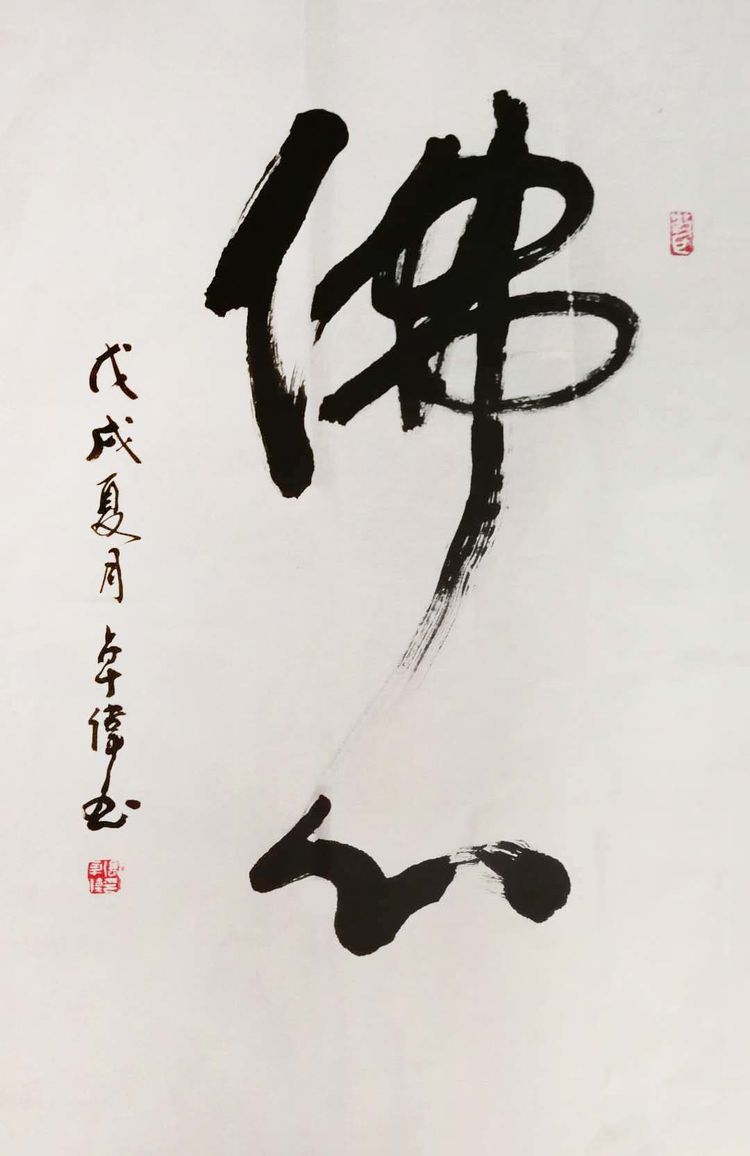 佛心
戊戌夏月卓偉书